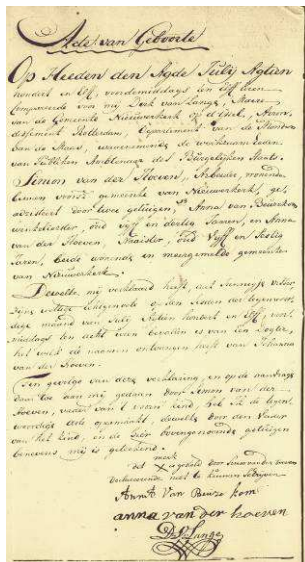 Acte van Geboorte
Op Heeden den Agtsten Julij Agtien
hondert en Elf, voordemiddags ten Elf uuren
Compareerde voor mij Dirk van Lange, Maire
van de Gemeente Nieuwerkerk op d' Isel, Arron,
dissement Rotterdam, Departement van de Monden
van de Maas, waarneemende de werkzaamheden
van Publiken Amtenaar des Burgelijken Staats
Simon van der Hoeven, Arbeider, wonende
binnen voorsz gemeente van Nieuwerkerk, ge,
adsisteert door twee getuigen, Anna van Beusekom
winkelierster, oud vijf en dertig Jaaren, en Anna
van der Hoeven, Naaister, oud Vijff en Sestig
Jaren, beide wonende in meergemelde gemeente
van Nieuwerkerk
Dewelke mij verklaard heeft, dat Jannigje
zijne wettige echtgenote op den sesden der tegenwoor,
dige maand van Julij Agtien hondert en Elf, voor,
middags ten acht uuren bevallen is van een Dogter,
het welk de naamen ontvangen heeft van Johanna
van der Hoeven
Ten gevolge van deze verklaring, en op de aandrage
daar toe aan mij gedaan door Simon van der
Hoeven, vader van 't voorn kind, heb Ik de tegen,
woordige Acte opgemaakt, dewelke door den Vader
van het kind, en de hier bovengenoemde getuigen
benevens mij is getekend
merk
dit X is gesteld door Simon van der hoeven
verklarende niet te kunnen schrijven
Anna Van Beuze kom
anna van der hoeven
D. V. Lange